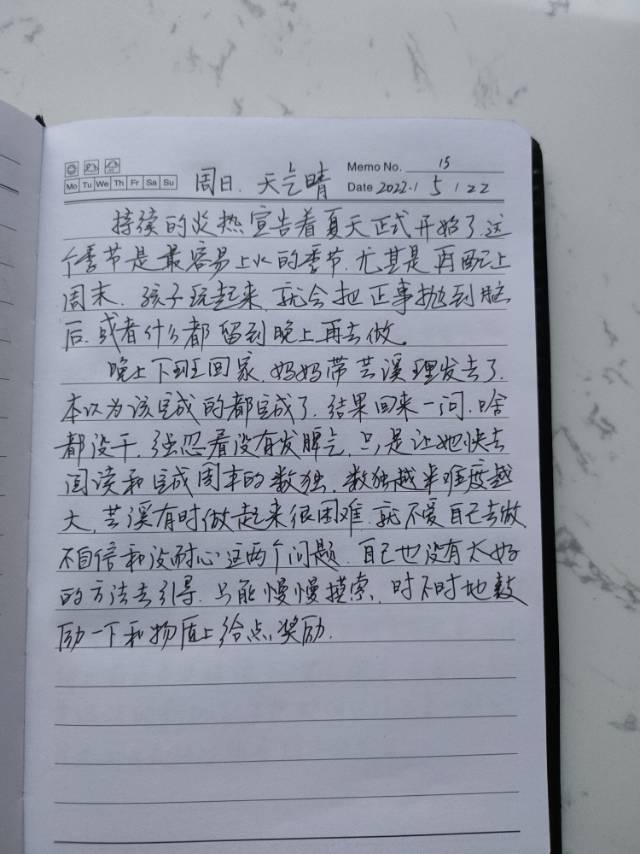 Memo No. 15
Mo Tu We Th Fr Sa Su
周日. 天气晴
Date 2022.1 5 1 22
持续的炎热宣告着夏天正式开始了.这
个季节是最容易上火的季节.尤其是再配上
周末.孩子玩起来.就会把正事抛到脑
后.或者什么都留到晚上再去做.
晚上下班回家.妈妈带芸溪理发去了.
本以为该完成的都完成了.结果回来一问.啥
都没干.强忍着没有发脾气.只是让她快去
阅读和完成周末的数独.数独越来难度越
大.芸溪有时做起来很困难.就不爱自己去做
不自信和没耐心这两个问题.自己也没有太好
的方法去引导.只能慢慢摸索.时不时地鼓
励一下和物质上给点奖励.